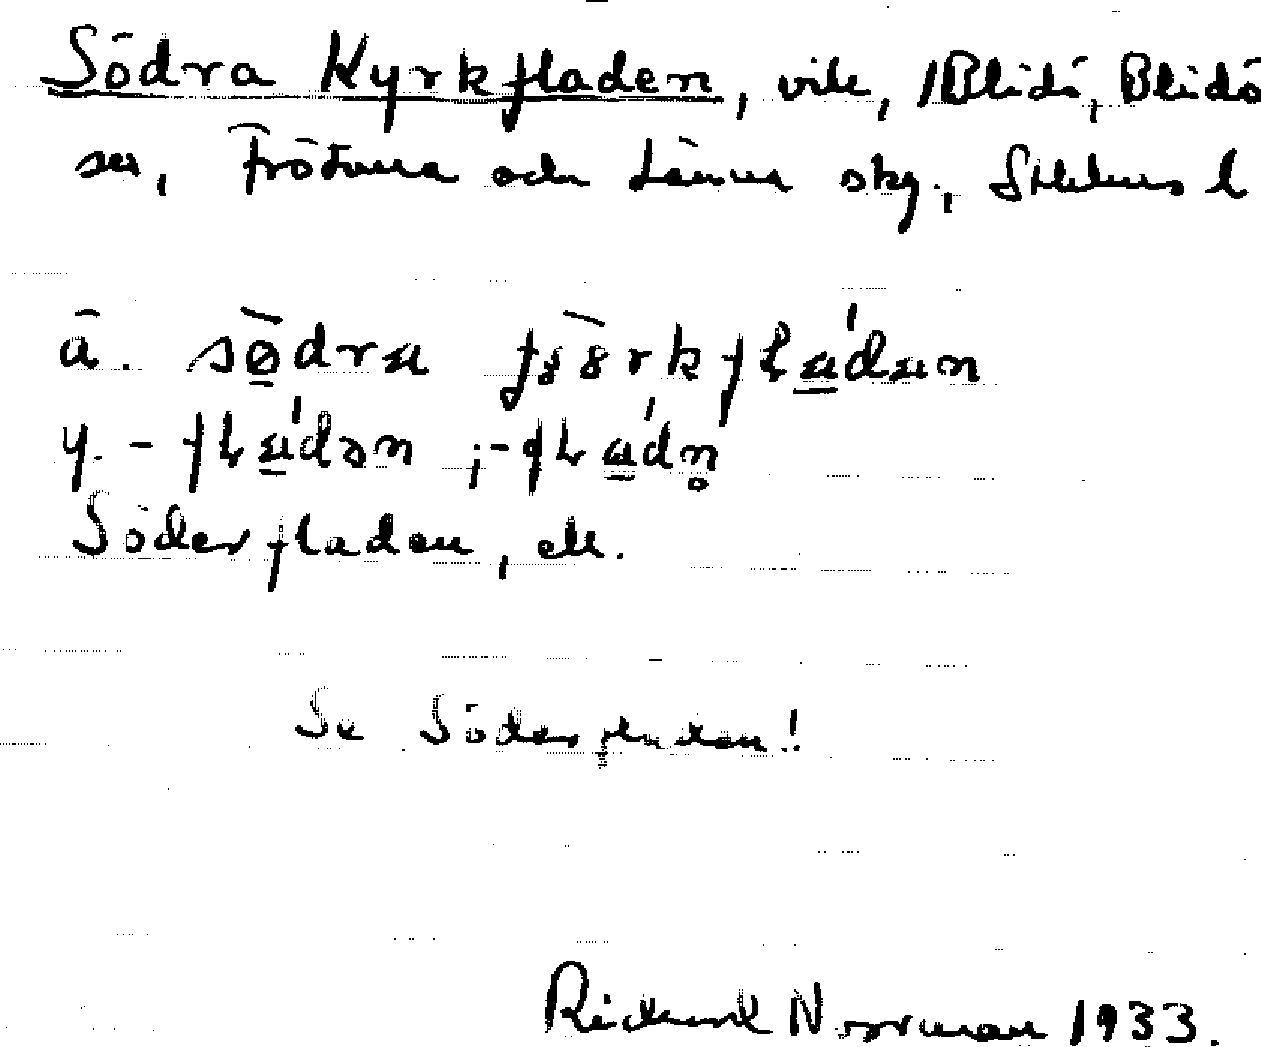 Södra Kyrkfladen, vik, Blidö, Blidö
sn, Frötuna och Länna skg., Sthlms l
ä. södra kyrkfladan
y. -fladən ; -fladn̥
Söderfladen, ell.
Se Söderfladen!
Rickard Norrman 1933.